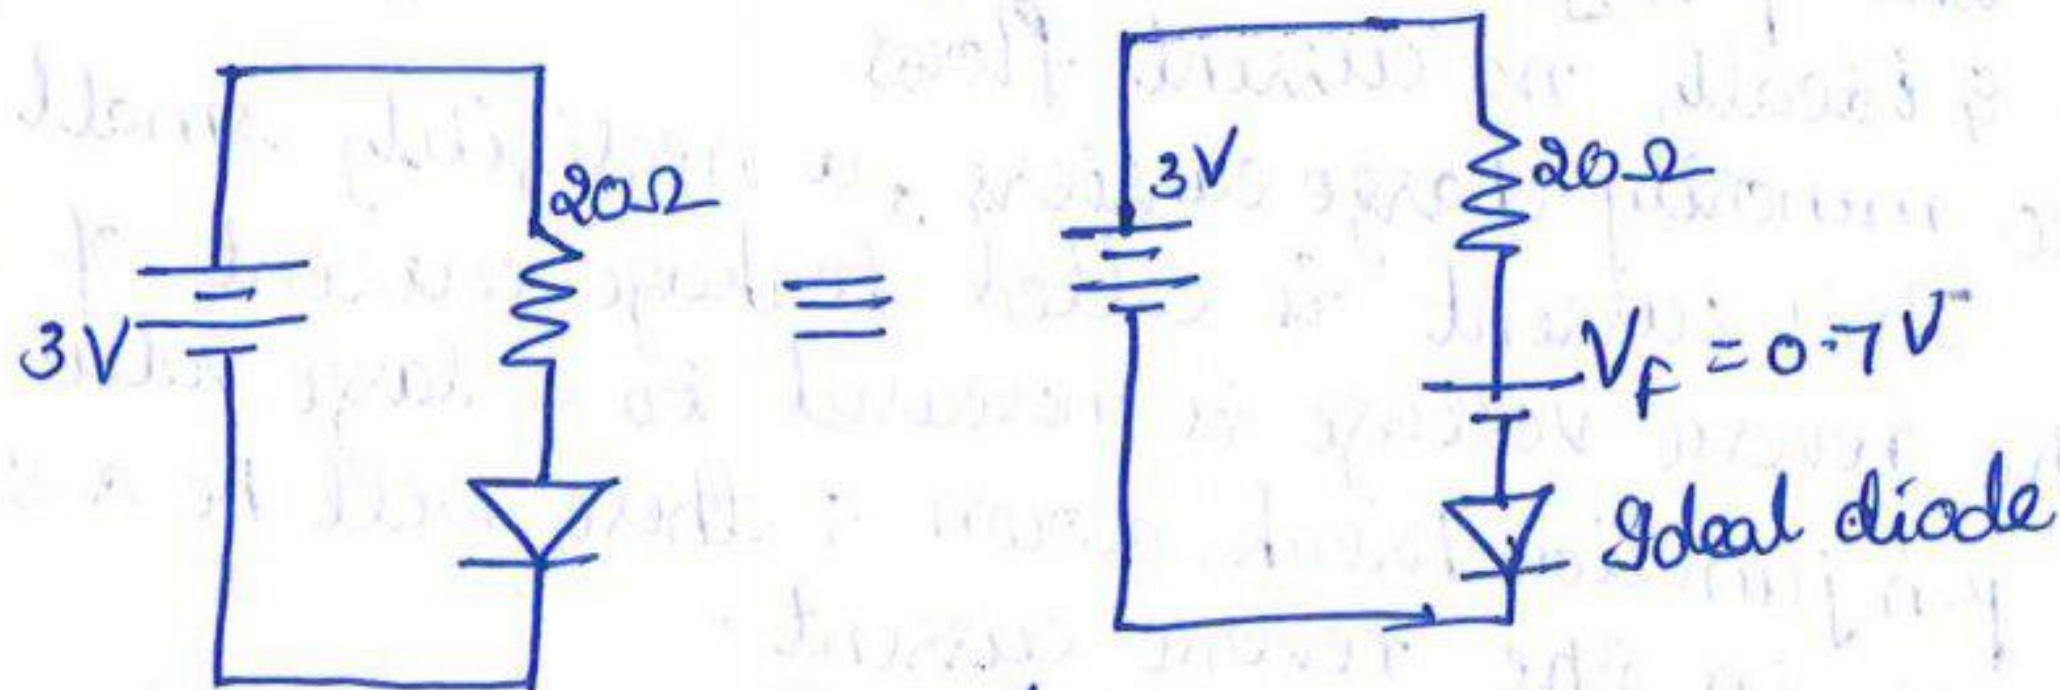 3V
20Ω
≡
3V
20Ω
V_F = 0.7 V
Ideal diode